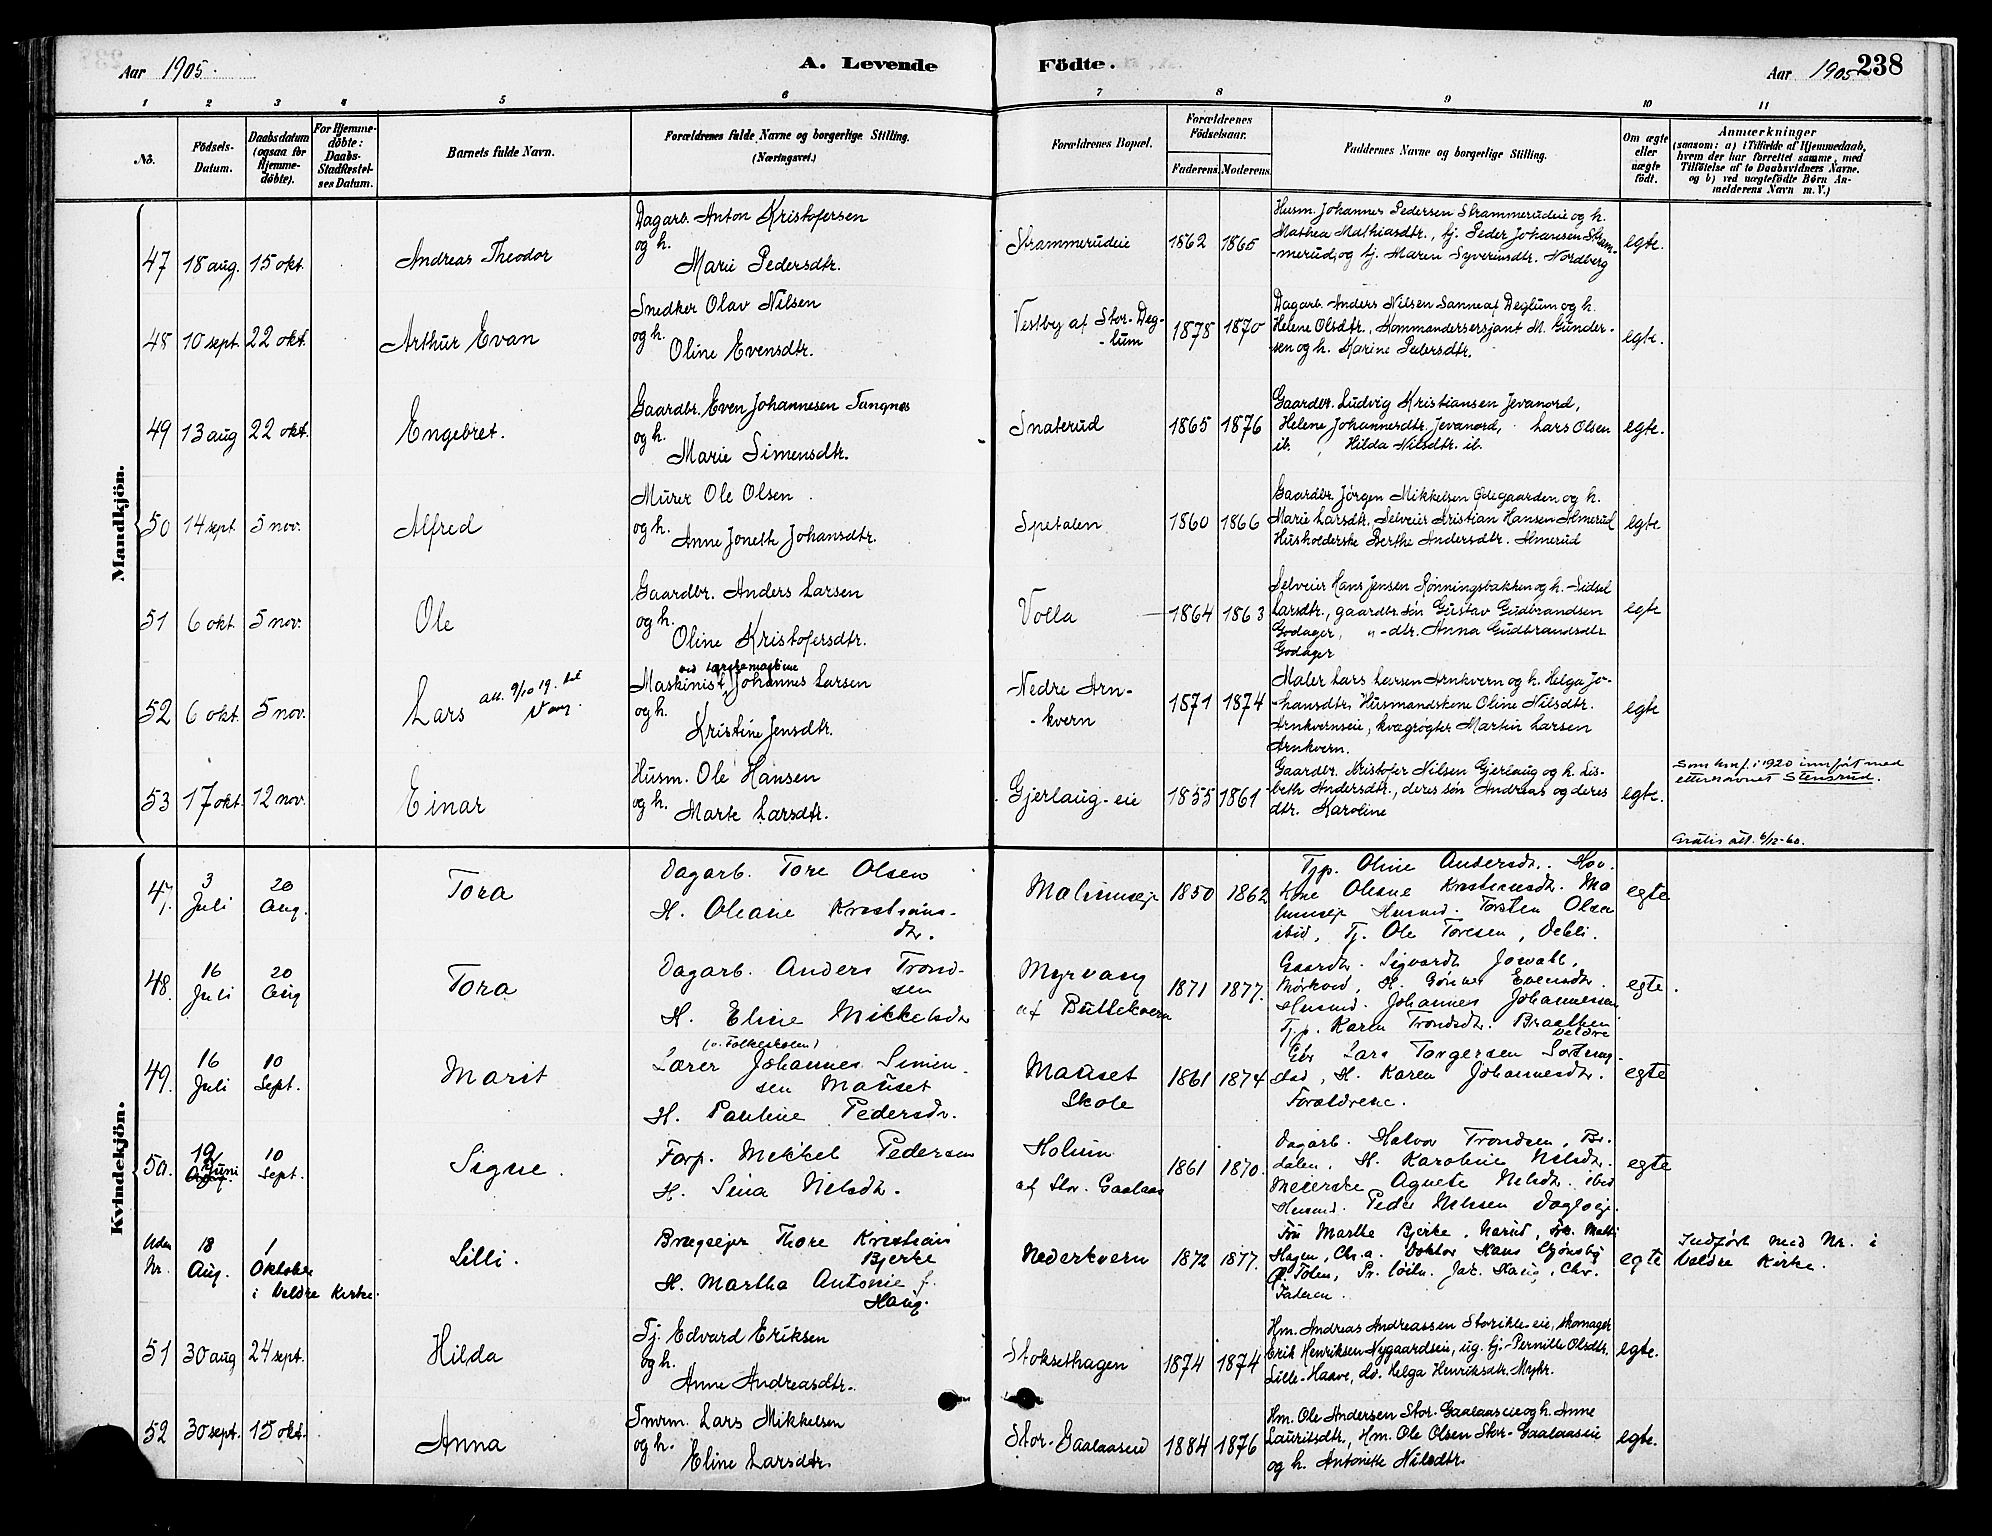 Aar 1905.
A. Levende Födte.
Aar 1905
238
1 2 3 4 5 6 7 8 9 10 11
No.
Födsels-
Datum.
Daabsdatum
(ogsaa for
Hjemme-
döbte).
For Hjemme-
döbte:
Daabs-
Stadfæstel-
ses Datum.
Barnets fulde Navn.
Forældrenes fulde Navne og borgerlige Stilling.
(Næringsvei.)
Forældrenes Bopæl.
Forældrenes
Födselsaar.
Faderens. Moderens.
Faddernes Navne og borgerlige Stilling.
Om ægte
eller
uægte
født.
Anmærkninger
(saasom: a) i Tilfælde af Hjemmedaab,
hvem der har forrettet samme, med
Tilföielse af to Daabsvidners Navne.
og b) ved uægtefödte Börn An-
melderens Navn m. V.)
Mandkjön.
47 18 aug. 15 okt.
Andreas Theodor
Dagarb. Anton Kristofersen
og h.
Marie Pedersdtr.
Strammerudeie
1862 1865
Husm. Johannes Pedersen Strammerudeie og h.
Mathea Mathiasdtr., tj. Peder Johansen Stram-
merud, og tj. Maren Syverinsdtr. Nordberg
egte.
48 10 sept. 22 okt.
Arthur Evan
Snedker Olav Nilsen
og h.
Oline Evensdtr.
Vestby af Stor-Deg-
-lum
1878 1870
Dagarb. Anders Nilsen Sanne af Deglum og h.
Helene Olsdtr., Kommandersersjant M. Gunder-
sen og h. Karine Pedersdtr.
egte.
49 13 aug 22 okt.
Engebret.
Gaardbr. Even Johannesen Tangnes
og h.
Marie Simensdtr.
Snaterud
1865 1876
Gaardbr. Ludvig Kristiansen Jevanord,
Helene Johannesdtr. Jevanord, Lars Olsen
ib. , Hilda Nilsdtr. ib.
egte.
50 14 sept 5 nov.
Alfred
Murer Ole Olsen
og h.
Anne Jonette Johansdtr.
Spetalen
1860 1866
Gaardbr. Jörgen Mikkelsen Ødegaarden og h.
Marie Larsdtr. Selveier Kristian Hansen Almerud
Husholderske Berthe Andersdtr. Almerud
egte
51 6 okt. 5 nov.
Ole
Gaardbr. Anders Larsen
og h.
Oline Kristofersdtr.
Volla
1864 1863
Selveier Hans Jensen Rønningsbakken og h. Sidsel
Larsdtr., gaardbr. søn Gustav Gudbrandsen
Godager, "-dtr. Anna Gudbrandsdtr
Godager
egte
52 6 okt. 5 nov.
Lars att. 9/10 19. til
Vang.
ved tærskemaskine
Maskinist Johannes Larsen
og h.
Kristine Jensdtr.
Nedre Arn-
-kvern
1871 1874
Maler Lars Larsen Arnkvern og h. Helga Jo-
hansdtr. Husmandskone Oline Nilsdtr.
Arnkvernseie, kvægrøgter Martin Larsen
Arnkvern.
egte
53 17 okt. 12 nov.
Einar
Husm. Ole Hansen
og h.
Marte Larsdtr.
Gjerlaug-eie
1855 1861
Gaardbr. Kristofer Nilsen Gjerlaug og h. Lis-
beth Andersdtr., deres søn Andreas og deres
dtr. Karoline
egte.
Som konf. i 1920 innført med
etternavnet Stensrud.
Gratis att. 6/12-60.
Kvindekjön.
47. 3 Juli 20 Aug.
Tora
Dagarb. Tore Olsen
H. Oleane Kristians-
dtr.
Malumseje
1850 1862
Tjp. Oline Andersdtr.
Kone Oleane Kristiansdtr. Ma
lumseje Husmd. Torsten Olsen
ibid, Tj. Ole Toresen, Dehli.
egte
48. 16 Juli 20 Aug
Tora
Dagarb. Anders Trond-
sen
H. Eline Mikkelsdtr
Myrvang
af Buttekvern
1871 1877.
Gaardbr. Sigvardt
H. Gønner Evensdtr.
Husmd. Johannes Johannessen
Tj.p. Karen Trondsdtr. Braathen
Veldre
egte.
49. 16 Juli 10 Sept.
Marit
(v. Folkeskolen)
Lærer Johannes Simen-
sen Mauset
H. Pauline Pedersdtr.
Mauset
Skole
1861 1874
Gbr Lars Torgersen
H. Karen Johannesdtr.
Forældrene.
egte
50. 19 Juni 10 Sept.
Signe.
Forp. Mikkel Pedersen
H. Sina Nilsdtr.
Holum
af Stor. Gaalaas
1861 1870.
Dagarb. Halvor Trondsen, Br.
dalen, H. Karoline Nilsdtr.
Meierske Agnete Nilsdtr. ibid
Husmd. Peder Nilsen
egte
Uden
Nr. 18 Aug. 1 Oktober
i Veldre Kirke.
Lilli.
Brugsejer Thore Kristian
Bjerke
H. Martha Antonie f.
Haug.
Nederkvern
1872 1877.
Fru Marthe Bjerke, Narud,
Hagen, Chr.a. Doktor Hans Gjønsby
Ø. Toten, Jac. Haug, Chr.
Faderen.
egte
Indført med Nr. i
Veldre Kirke.
51 30 aug 24 sept.
Hilda
Tj. Edvard Eriksen
og h.
Anne Andreasdtr.
Stoksethagen
1874 1874
Hm. Andreas Andreassen eie, skomager
Erik Henriksen Nygaardseie, ug. tj. Pernille Olsdtr.
Lille-Haave, do. Helga Henriksdtr.
egte.
52 30 sept. 15 okt.
Anna
Tmrm. Lars Mikkelsen
og h.
Eline Larsdtr.
Stor-Gaalaaseie
1884 1876
Hm. Ole Andersen Stor-Gaalaaseie og h. Anne
Lauritsdtr., Hm. Ole Olsen Stor-Gaalaaseie
og h. Antonette Nilsdtr.
egte.